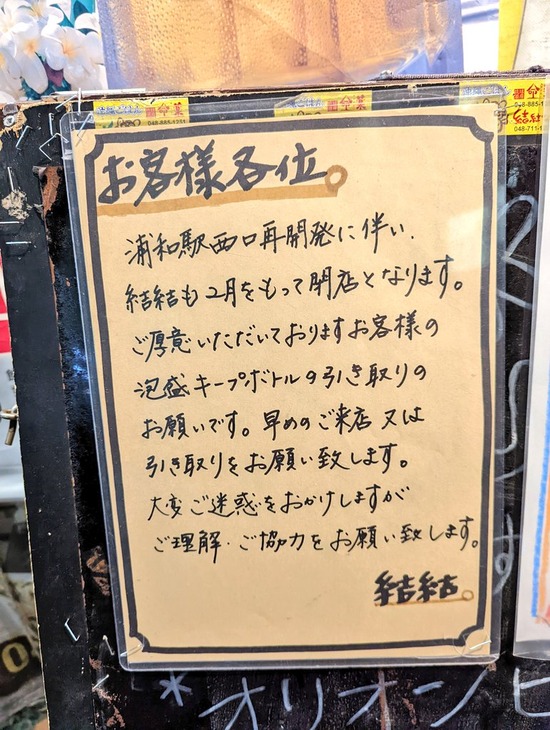 048-885-1251
048-711-1
お客様各位。
浦和駅西口再開発に伴い、
結結も2月をもって閉店となります。
ご厚意いただいておりますお客様の
泡盛キープボトルの引き取りの
お願いです。早めのご来店又は
引き取りをお願い致します。
大変ご迷惑をおかけしますが
ご理解・ご協力をお願い致します。
結結。
*オリオンビ